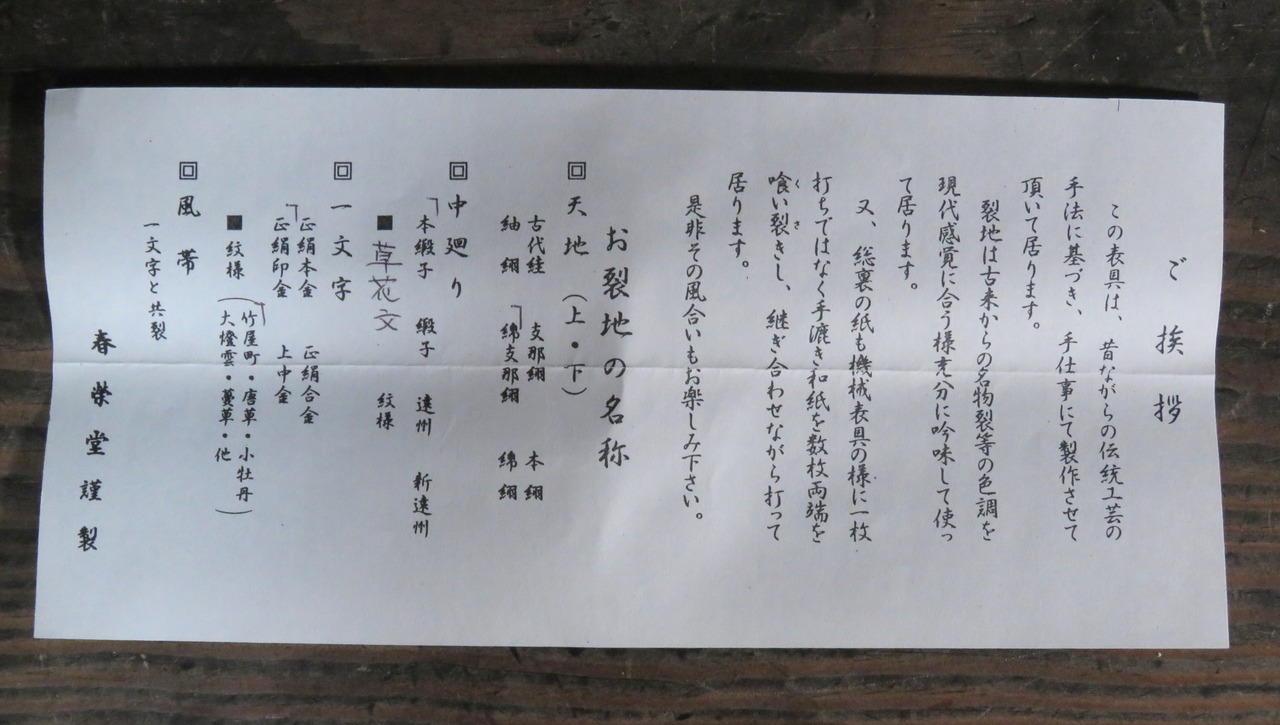 ご挨拶
この表具は、昔ながらの伝統工芸の
手法に基づき、手仕事にて製作させて
頂いて居ります。
裂地は古来からの名物裂等の色調を
現代感覚に合う様充分に吟味して使っ
て居ります。
又、総裏の紙も機械表具の様に一枚
打ちではなく手漉き和紙を数枚両端を
喰い裂きし、継ぎ合わせながら打って
くさ
居ります。
是非その風合いもお楽しみ下さい。
お裂地の名称
回 天地(上・下)
古代絓 支那絓 本絓
紬絓 綿支那絓 綿絓
回 中廻り
本緞子 緞子 遠州 新遠州
■ 草花文 紋様
回 一文字
正絹本金 正絹合金
正絹印金 上中金
■ 紋様(竹屋町・唐草・小牡丹
大燈雲・蔓草・他)
回 風帯
一文字と共裂
春栄堂謹製